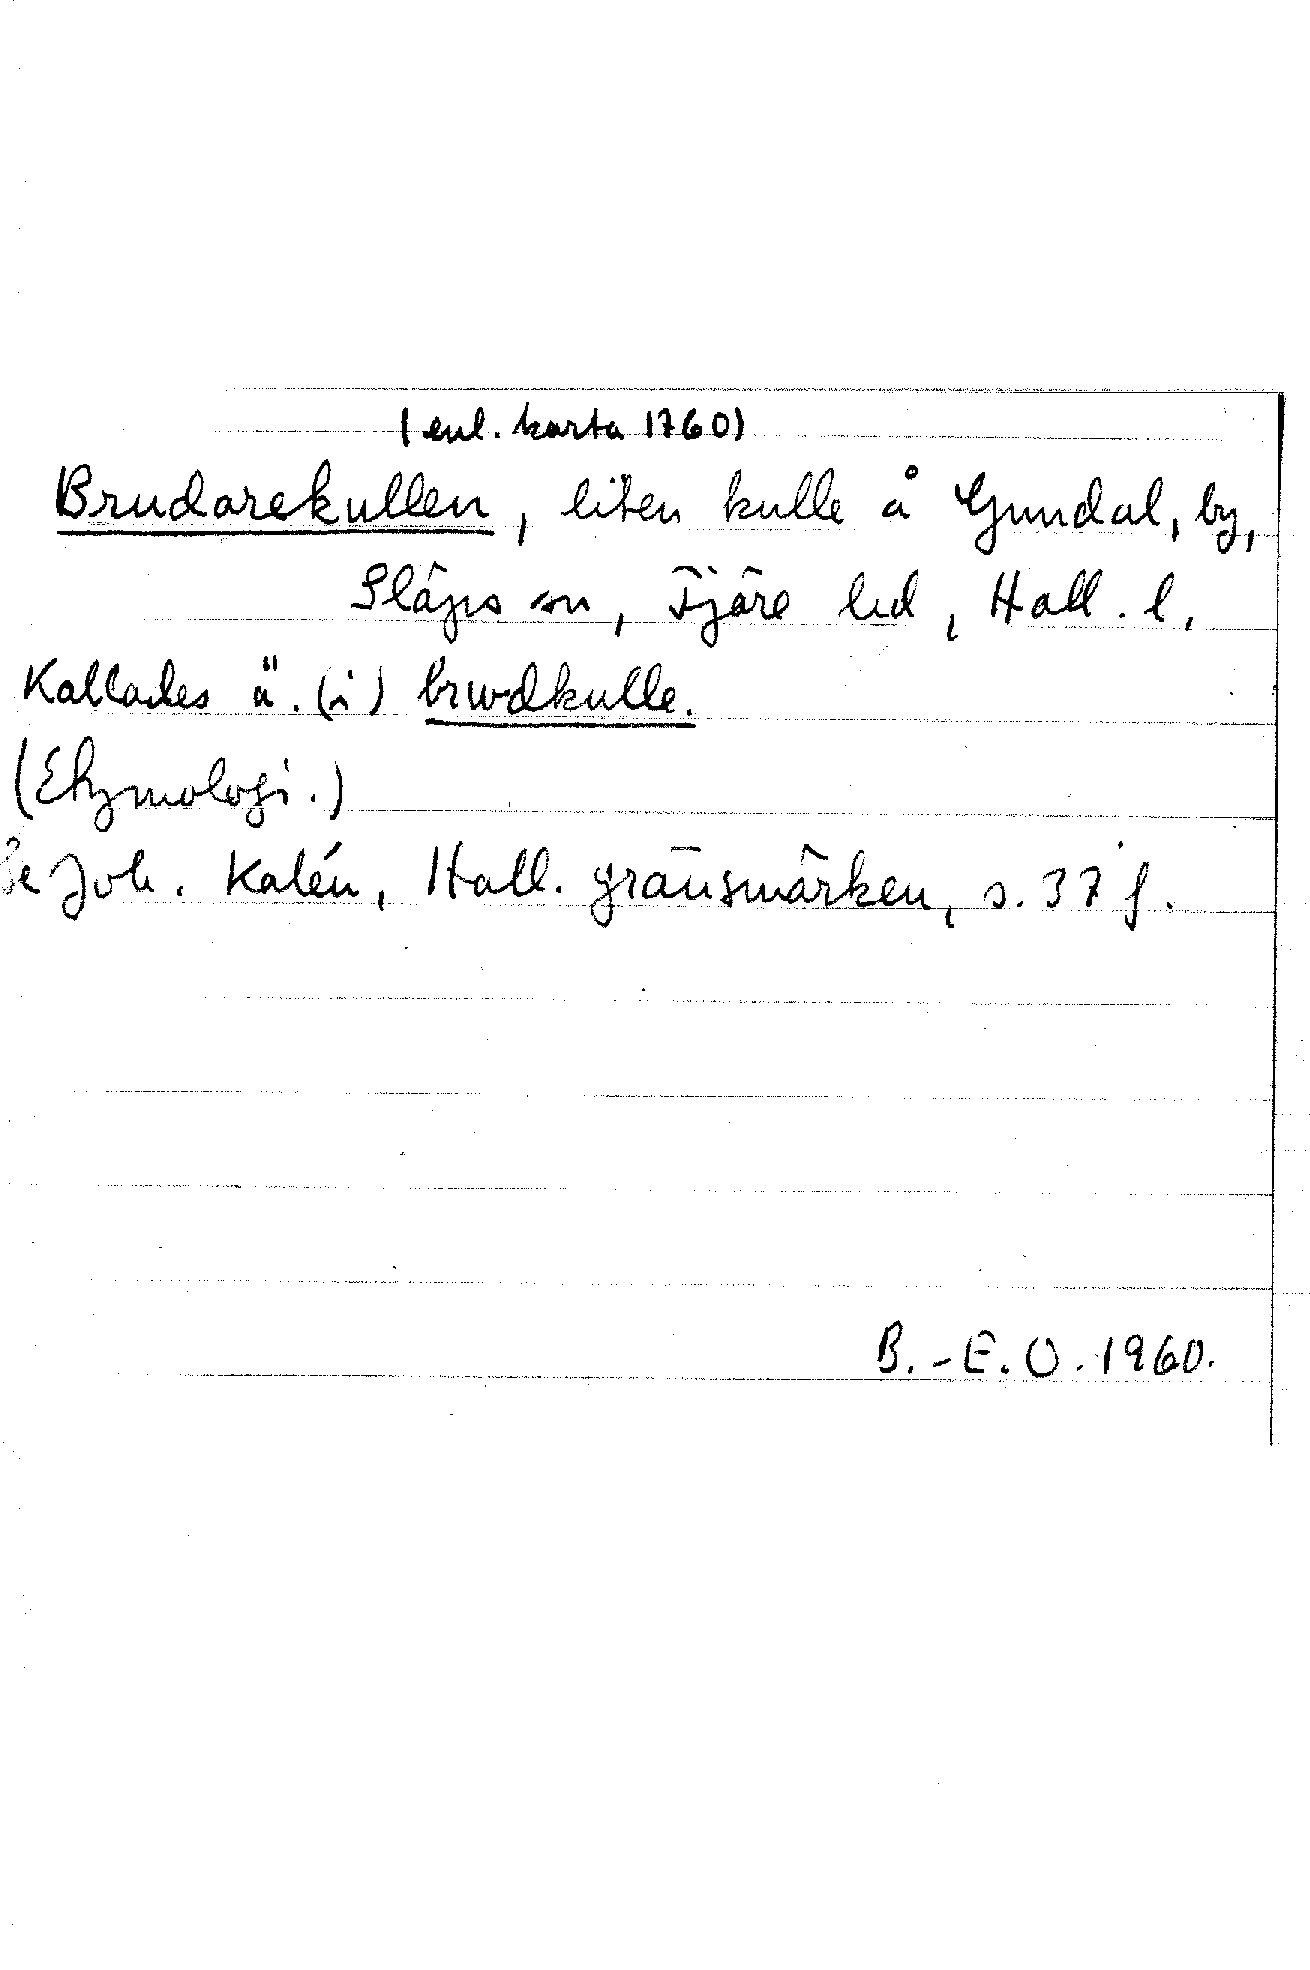 (enl. karta 1760)
Brudarekullen, liten kulle å Gundal, by,
Släps sn, Fjäre hd, Hall. l.
Kallades ä. (i) brwdkulle.
(Etymologi.)
Se Joh. Kalén, Hall. gränsmärken, s. 37 f.
B.-E. O. 1960.